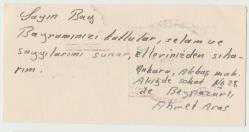 Sayın Bay
Bayramınızı kutlular, selam ve
saygılarımı sunar, ellerinizden sıka-
rım.
Ankara, mah.
sokak No 28
de
Ahmet Aras